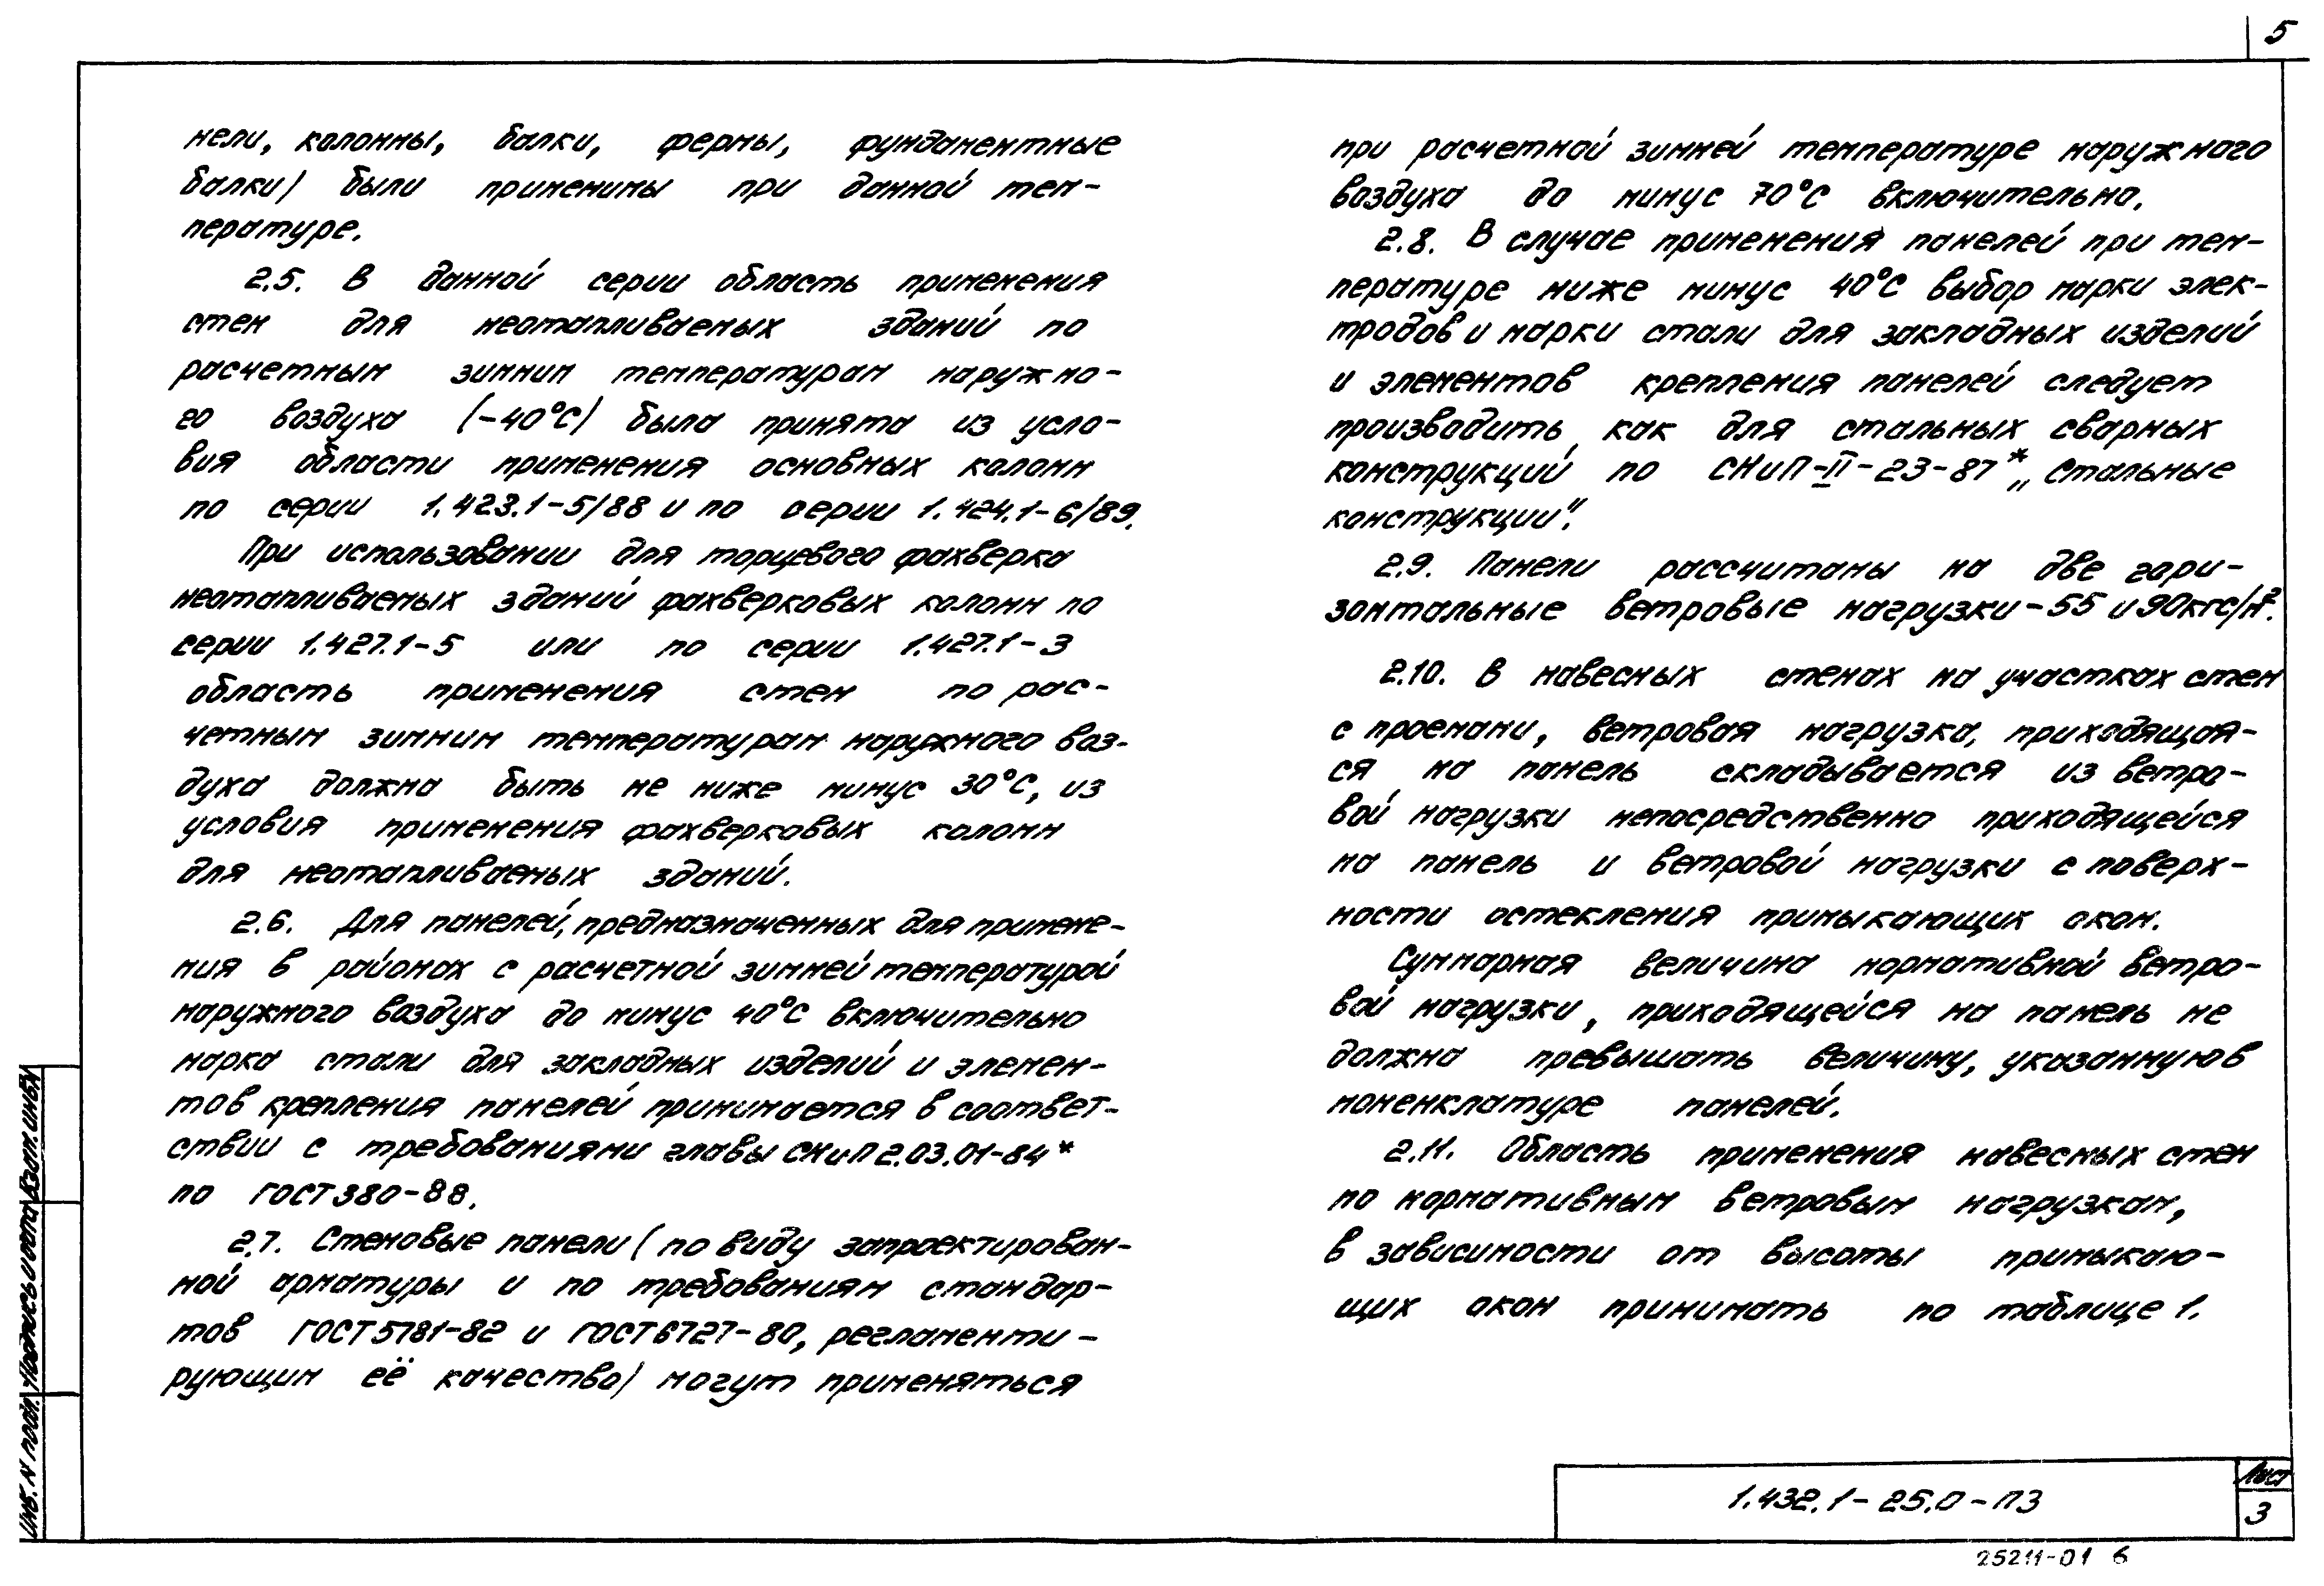 5
нели, колонны, балки, фермы, фундаментные
балки) были применимы при данной тем-
пературе.
2.5. В данной серии область применения
стен для неотапливаемых зданий по
расчетным зимним температурам наружно-
го воздуха (-40°С) была принята из усло-
вия области применения основных колонн
по серии 1.423.1-5/88 и по серии 1.424.1-6/89.
При использовании для торцевого фахверка
неотапливаемых зданий фахверковых колонн по
серии 1.427.1-5 или по серии 1.427.1-3
область применения стен по рас-
четным зимним температурам наружного воз-
духа должна быть не ниже минус 30°С, из
условия применения фахверковых колонн
для неотапливаемых зданий.
2.6. Для панелей, предназначенных для примене-
ния в районах с расчетной зимней температурой
наружного воздуха до минус 40°С включительно
марка стали для закладных изделий и элемен-
тов крепления панелей принимается в соответ-
ствии с требованиями главы СНиП 2.03.01-84*
по ГОСТ 380-88.
2.7. Стеновые панели (по виду запроектирован-
ной арматуры и по требованиям стандар-
тов ГОСТ 5781-82 и ГОСТ 6727-80, регламенти-
рующим её качество) могут применяться
при расчетной зимней температуре наружного
воздуха до минус 70°С включительно.
2.8. В случае применения панелей при тем-
пературе ниже минус 40°С выбор марки элек-
тродов и марки стали для закладных изделий
и элементов крепления панелей следует
производить как для стальных сварных
конструкций по СНиП-II-23-87* „Стальные
конструкции".
2.9. Панели рассчитаны на две гори-
зонтальные ветровые нагрузки - 55 и 90кгс/м².
2.10. В навесных стенах на участках стен
с проемами, ветровая нагрузка, приходящая-
ся на панель складывается из ветро-
вой нагрузки непосредственно приходящейся
на панель и ветровой нагрузки с поверх-
ности остекления примыкающих окон.
Суммарная величина нормативной ветро-
вой нагрузки, приходящейся на панель не
должна превышать величину, указанную в
номенклатуре панелей.
2.11. Область применения навесных стен
по нормативным ветровым нагрузкам,
в зависимости от высоты примыкаю-
щих окон принимать по таблице 1.
Инв. N подл. Подпись и дата Взам. инв.N
1.432.1-25.0-ПЗ
Лист
3
25211-01 6